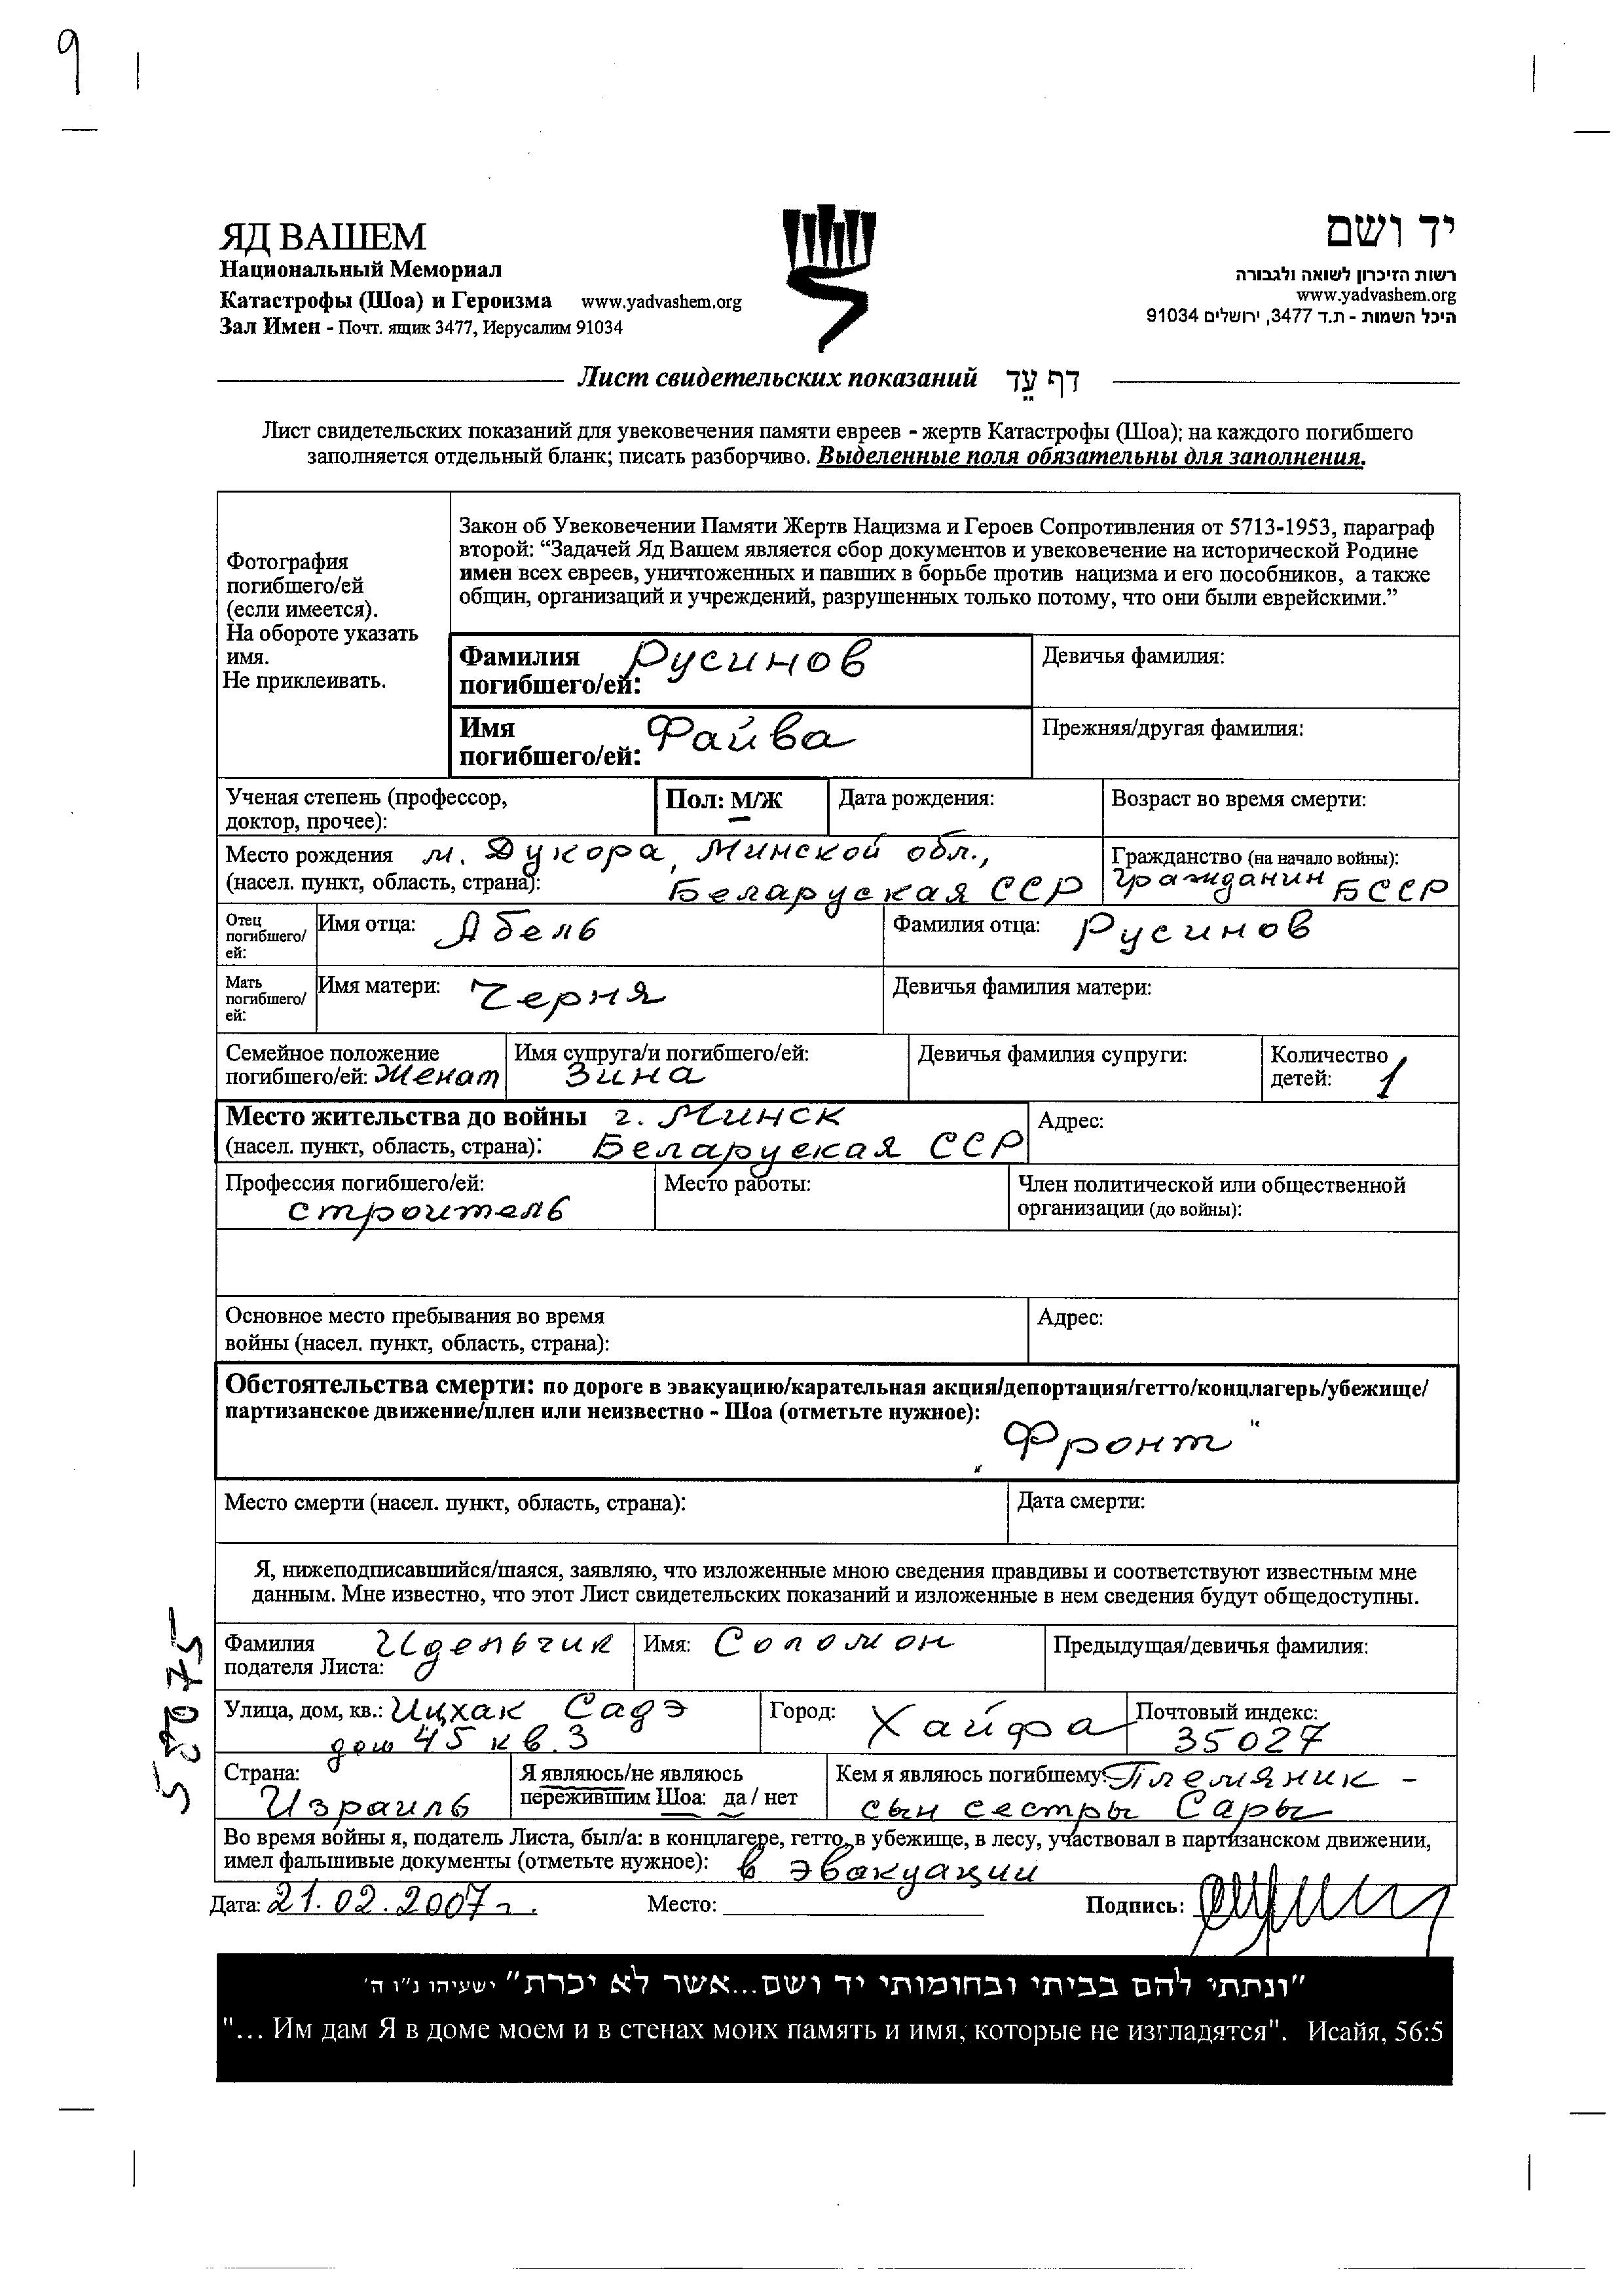 9
ЯД ВАШЕМ
Национальный Мемориал
Катастрофы (Шоа) и Героизма www.yadvashem.org
Зал Имен - Почт. ящик 3477, Иерусалим 91034
יד ושם
רשות הזיכרון לשואה ולגבורה
www.yadvashem.org
היכל השמות - ת.ד 3477, ירושלים 91034
Лист свидетельских показаний דף עֵד
Лист свидетельских показаний для увековечения памяти евреев - жертв Катастрофы (Шоа); на каждого погибшего
заполняется отдельный бланк; писать разборчиво. Выделенные поля обязательны для заполнения.
Фотография
погибшего/ей
(если имеется).
На обороте указать
имя.
Не приклеивать.
Закон об Увековечении Памяти Жертв Нацизма и Героев Сопротивления от 5713-1953, параграф
второй: “Задачей Яд Вашем является сбор документов и увековечение на исторической Родине
имен всех евреев, уничтоженных и павших в борьбе против нацизма и его пособников, а также
общин, организаций и учреждений, разрушенных только потому, что они были еврейскими.”
Фамилия погибшего/ей: Русинов
Девичья фамилия:
Имя погибшего/ей: Файва
Прежняя/другая фамилия:
Ученая степень (профессор,
доктор, прочее):
Пол: М/Ж
Дата рождения:
Возраст во время смерти:
Место рождения м. Дукора, Минской обл.,
(насел. пункт, область, страна): Беларуская ССР
Гражданство (на начало войны):
гражданин БССР
Отец
погибшего/
ей:
Имя отца: Абель
Фамилия отца: Русинов
Мать
погибшего/
ей:
Имя матери: Черня
Девичья фамилия матери:
Семейное положение
погибшего/ей: Женат
Имя супруга/и погибшего/ей:
Зина
Девичья фамилия супруги:
Количество
детей: 1
Место жительства до войны г. Минск
(насел. пункт, область, страна): Беларуская ССР
Адрес:
Профессия погибшего/ей:
строитель
Место работы:
Член политической или общественной
организации (до войны):
Основное место пребывания во время
войны (насел. пункт, область, страна):
Адрес:
Обстоятельства смерти: по дороге в эвакуацию/карательная акция/депортация/гетто/концлагерь/убежище/
партизанское движение/плен или неизвестно - Шоа (отметьте нужное):
„Фронт“
Место смерти (насел. пункт, область, страна):
Дата смерти:
Я, нижеподписавшийся/шаяся, заявляю, что изложенные мною сведения правдивы и соответствуют известным мне
данным. Мне известно, что этот Лист свидетельских показаний и изложенные в нем сведения будут общедоступны.
Фамилия
подателя Листа: Идельчик
Имя: Соломон
Предыдущая/девичья фамилия:
Улица, дом, кв.: Ицхак Садэ
дом 45 кв. 3
Город: Хайфа
Почтовый индекс:
35027
Страна:
Израиль
Я являюсь/не являюсь
пережившим Шоа: да / нет
Кем я являюсь погибшему: Племяник -
сын сестры Сары
Во время войны я, податель Листа, был/а: в концлагере, гетто, в убежище, в лесу, участвовал в партизанском движении,
имел фальшивые документы (отметьте нужное): в эвакуации
Дата: 21.02.2007г. Место: Подпись:
"ונתתי להם בביתי ובחומותי יד ושם...אשר לא יכרת" ישעיהו נ"ו ה'
"... Им дам Я в доме моем и в стенах моих память и имя, которые не изгладятся". Исайя, 56:5